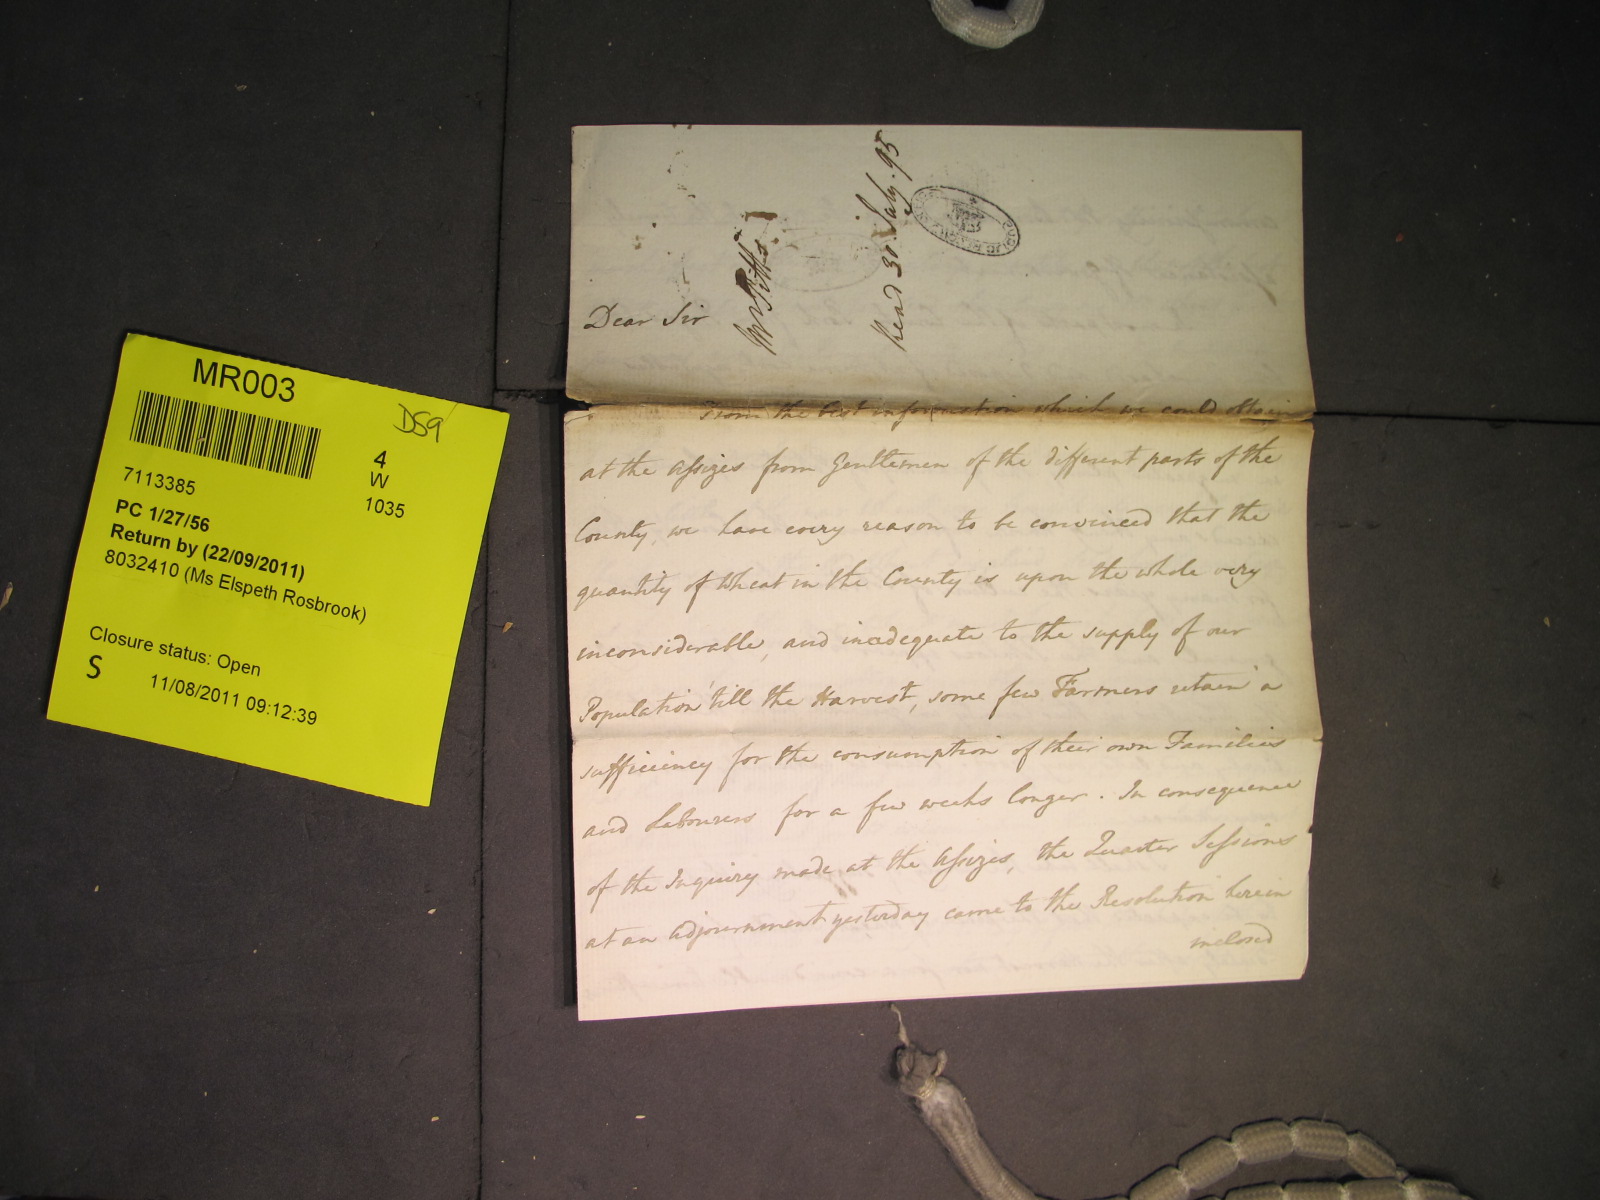 MR003
DS9
4
W
1035
7113385
PC 1/27/56
Return by (22/09/2011)
8032410 (Ms Elspeth Rosbrook)
Closure status: Open
S
11/08/2011 09:12:39
Mr Pitts
Read 31 July. 95
Dear Sir
From the best information which we could obtain
at the Assizes from Gentlemen of the different parts of the
County, we have every reason to be convinced that the
quantity of Wheat in the County is upon the whole very
inconsiderable, and inadequate to the supply of our
Population 'till the Harvest, some few Farmers retain a
sufficiency for the consumption of their own Families
and Labourers for a few weeks longer. In consequence
of the Inquiry made at the Assizes, the Quarter Sessions
at an Adjournment yesterday came to the Resolution herein
inclosed